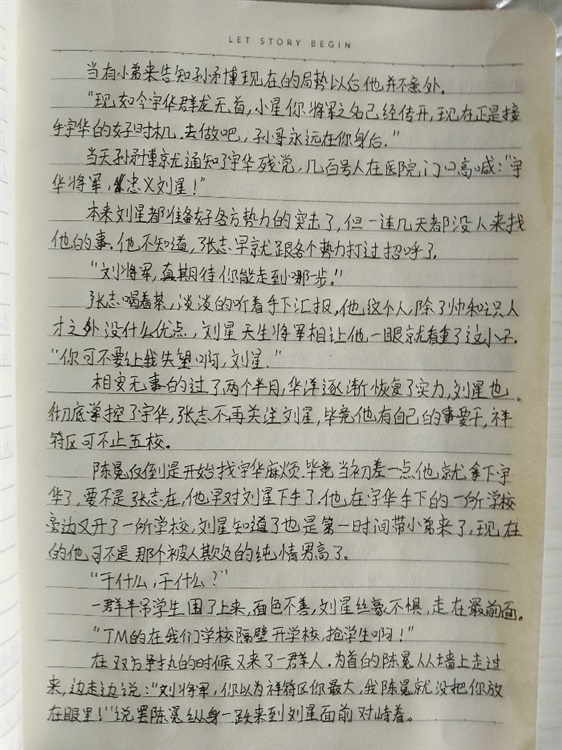 LET STORY BEGIN
当有小弟来告知孙矛博现在的局势以后他并不意外.
"现如今宇华群龙无首,小星你将军之名已经传开,现在正是接
手宇华的好时机.去做吧,孙哥永远在你身后."
当天孙矛博就通知了宇华残党,几百号人在医院门口高喊:"宇
华将军,忠义刘星!"
本来刘星都准备好各方势力的突击了,但一连几天都没人来找
他的事.他不知道,张志早就跟各个势力打过招呼了.
"刘将军,真期待你能走到哪步."
张志喝着茶,淡淡的听着手下汇报,他这个人,除了帅和识人
才之外没什么优点,刘星天生将军相让他一眼就看重了这小子.
"你可不要让我失望啊,刘星."
相安无事的过了两个半月,华洋逐渐恢复了实力,刘星也
彻底掌控了宇华,张志不再关注刘星,毕竟他有自己的事要干,祥
特区可不止五校。
陈冕仪倒是开始找宇华麻烦.毕竟当初差一点他就拿下宇
华了,要不是张志在,他早对刘星下手了.他在宇华手下的一所学校
旁边又开了一所学校,刘星知道了也是第一时间带小弟来了,现在
的他可不是那个被人欺负的纯情男高了。
"干什么,干什么?"
一群半吊学生围了上来,面色不善,刘星丝毫不惧,走在最前面.
"TM的在我们学校隔壁开学校,抢学生啊!"
在双方争执的时候又来了一群人,为首的陈冕从墙上走过
来,边走边说:"刘将军,你以为祥特区你最大,我陈冕就没把你放
在眼里!"说罢陈冕纵身一跃来到刘星面前对峙着。